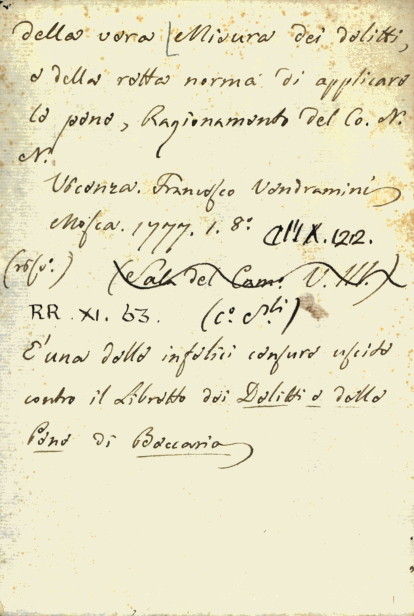 della vera Misura dei delitti,
e della retta norma di applicare
le pene, Ragionamento del Co. N.
N.
Vicenza. Francesco Vendramini
Mosca. 1777. 1. 8.°
X. 1212.
(Sala del Cam. V. III.)
RR. XI. 63.
E' una delle infelici censure uscite
contro il Libretto dei Delitti e delle
Pene di Beccaria